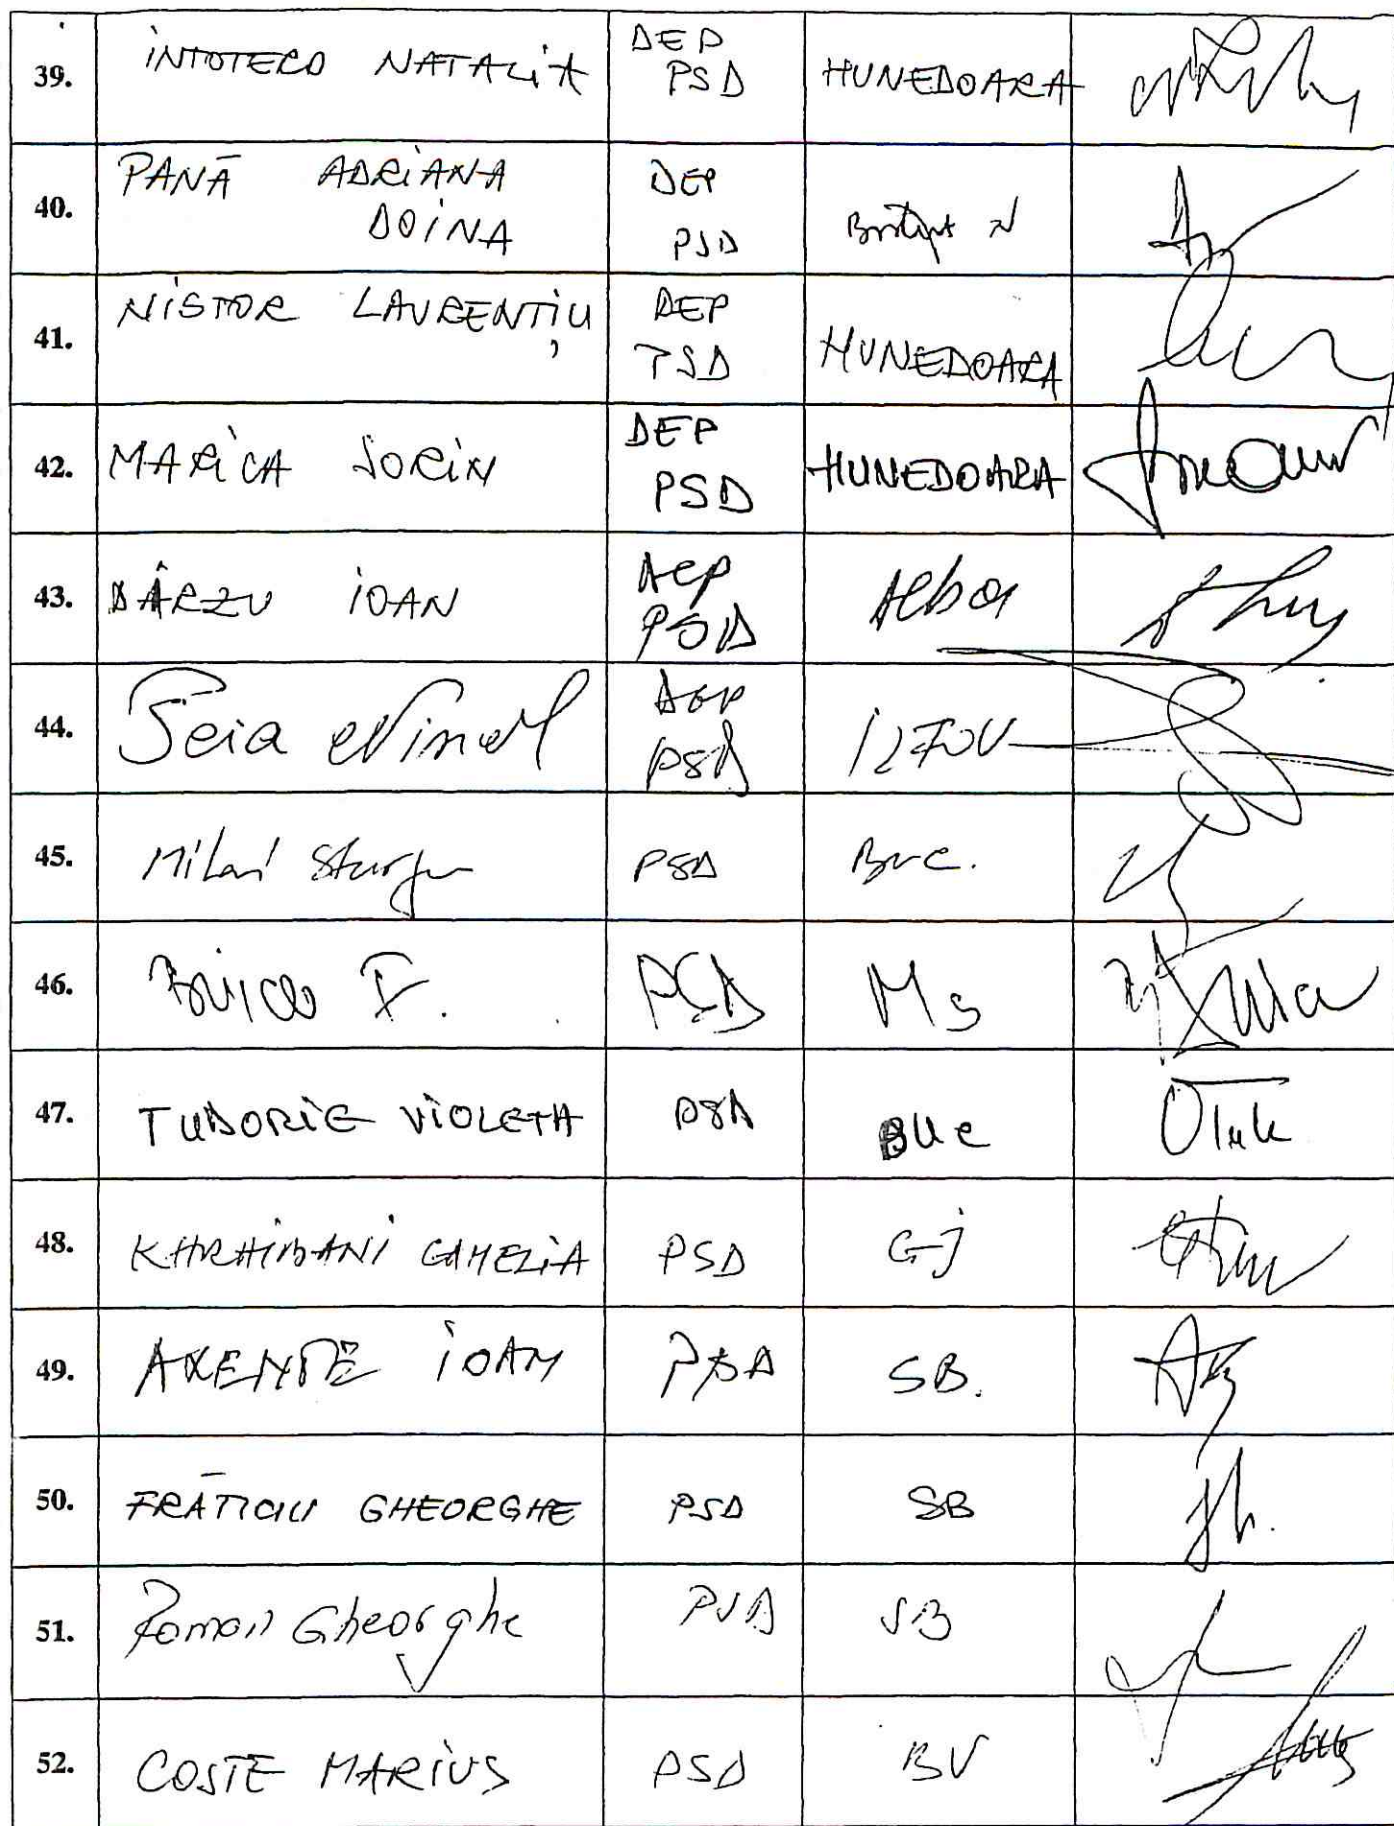 39. INTOTERO NATALIA DEP PSD HUNEDOARA
40. PANĂ ADRIANA DOINA DEP PSD N
41. NISTOR LAURENȚIU DEP PSD HUNEDOARA
42. MARICA SORIN DEP PSD HUNEDOARA
43. DÂRZU IOAN DEP PSD Alba
44. Peia Ninel Dep PSD ILFOV
45. Mihai Sturzu PSD Buc.
46. F. PSD Ms
47. TUDORIE VIOLETA PSD BUC
48. KHRAIBANI CAMELIA PSD GJ
49. AXENTE IOAN PSD SB.
50. FRĂTICIU GHEORGHE PSD SB
51. Roman Gheorghe PSD SB
52. COSTE MARIUS PSD BV